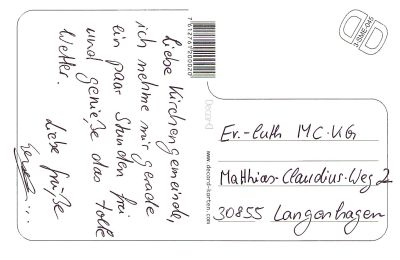 Liebe Kirchengemeinde,
ich nehme mir gerade
ein paar Stunden frei
und genieße das tolle
Wetter.
Liebe Grüße
7612767200020
Decard
www.decard-karten.com
3-SME-045
Ev.-luth MC-KG
Matthias-Claudius-Weg 2
30855 Langenhagen